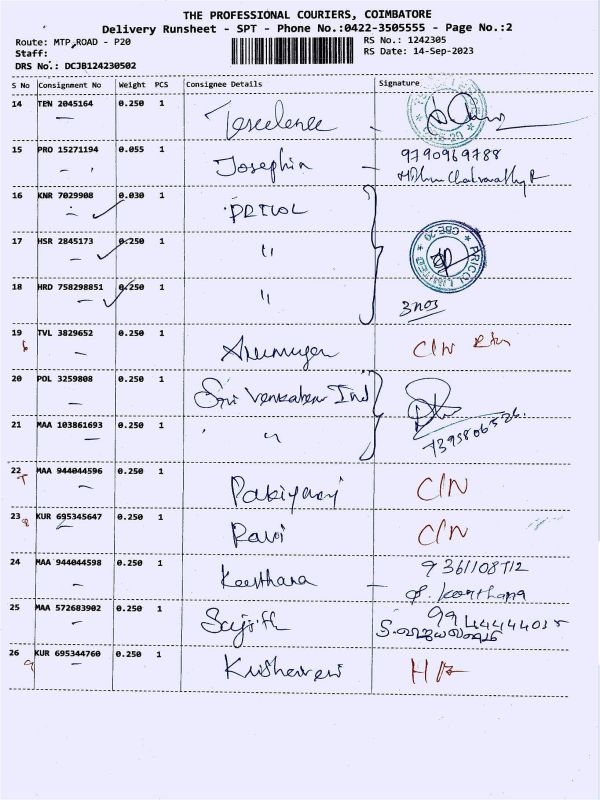 THE PROFESSIONAL COURIERS, COIMBATORE
Delivery Runsheet - SPT - Phone No.:0422-3505555 - Page No.:2
Route: MTP ROAD - P20 RS No.: 1242305
Staff: RS Date: 14-Sep-2023
DRS No.: DCJB124230502
S No Consignment No Weight PCS Consignee Details Signature
14 TEN 2045164 0.250 1
15 PRO 15271194 0.055 1 Josephin 9790969788
16 KNR 7029908 0.030 1 PRICOL
17 HSR 2845173 0.250 1 "
PRICOL LIMITED CBE-20
18 HRD 758298851 0.250 1 "
3nos
19 TVL 3829652 0.250 1 Arumugam C/N
6
20 POL 3259808 0.250 1 Sri Venkateswar Ind
21 MAA 103861693 0.250 1 "
22 MAA 944044596 0.250 1 C/N
7
23 KUR 695345647 0.250 1 Ravi C/N
8
24 MAA 944044598 0.250 1 Keerthana 9361108712
25 MAA 572683902 0.250 1 Sajith
26 KUR 695344760 0.250 1
9